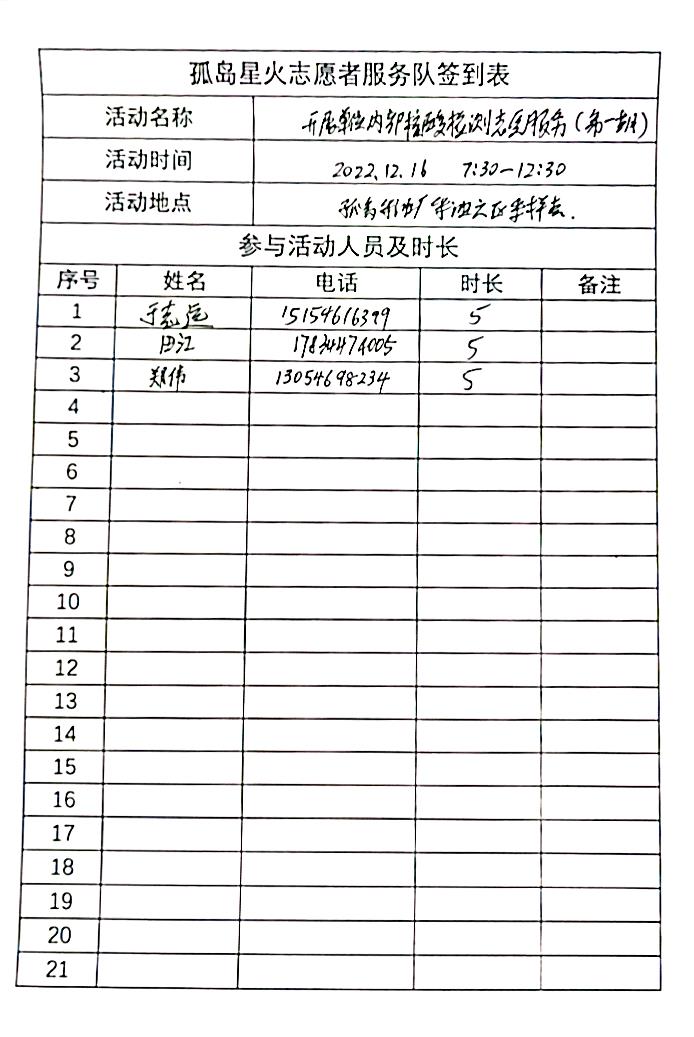 孤岛星火志愿者服务队签到表
活动名称 开展单位内部核酸检测志愿服务(第一期)
活动时间 2022.12.16 7:30-12:30
活动地点 孤岛
参与活动人员及时长
序号 姓名 电话 时长 备注
1 于志远 15154616399 5
2 田江 17834474005 5
3 郑伟 13054698234 5
4
5
6
7
8
9
10
11
12
13
14
15
16
17
18
19
20
21